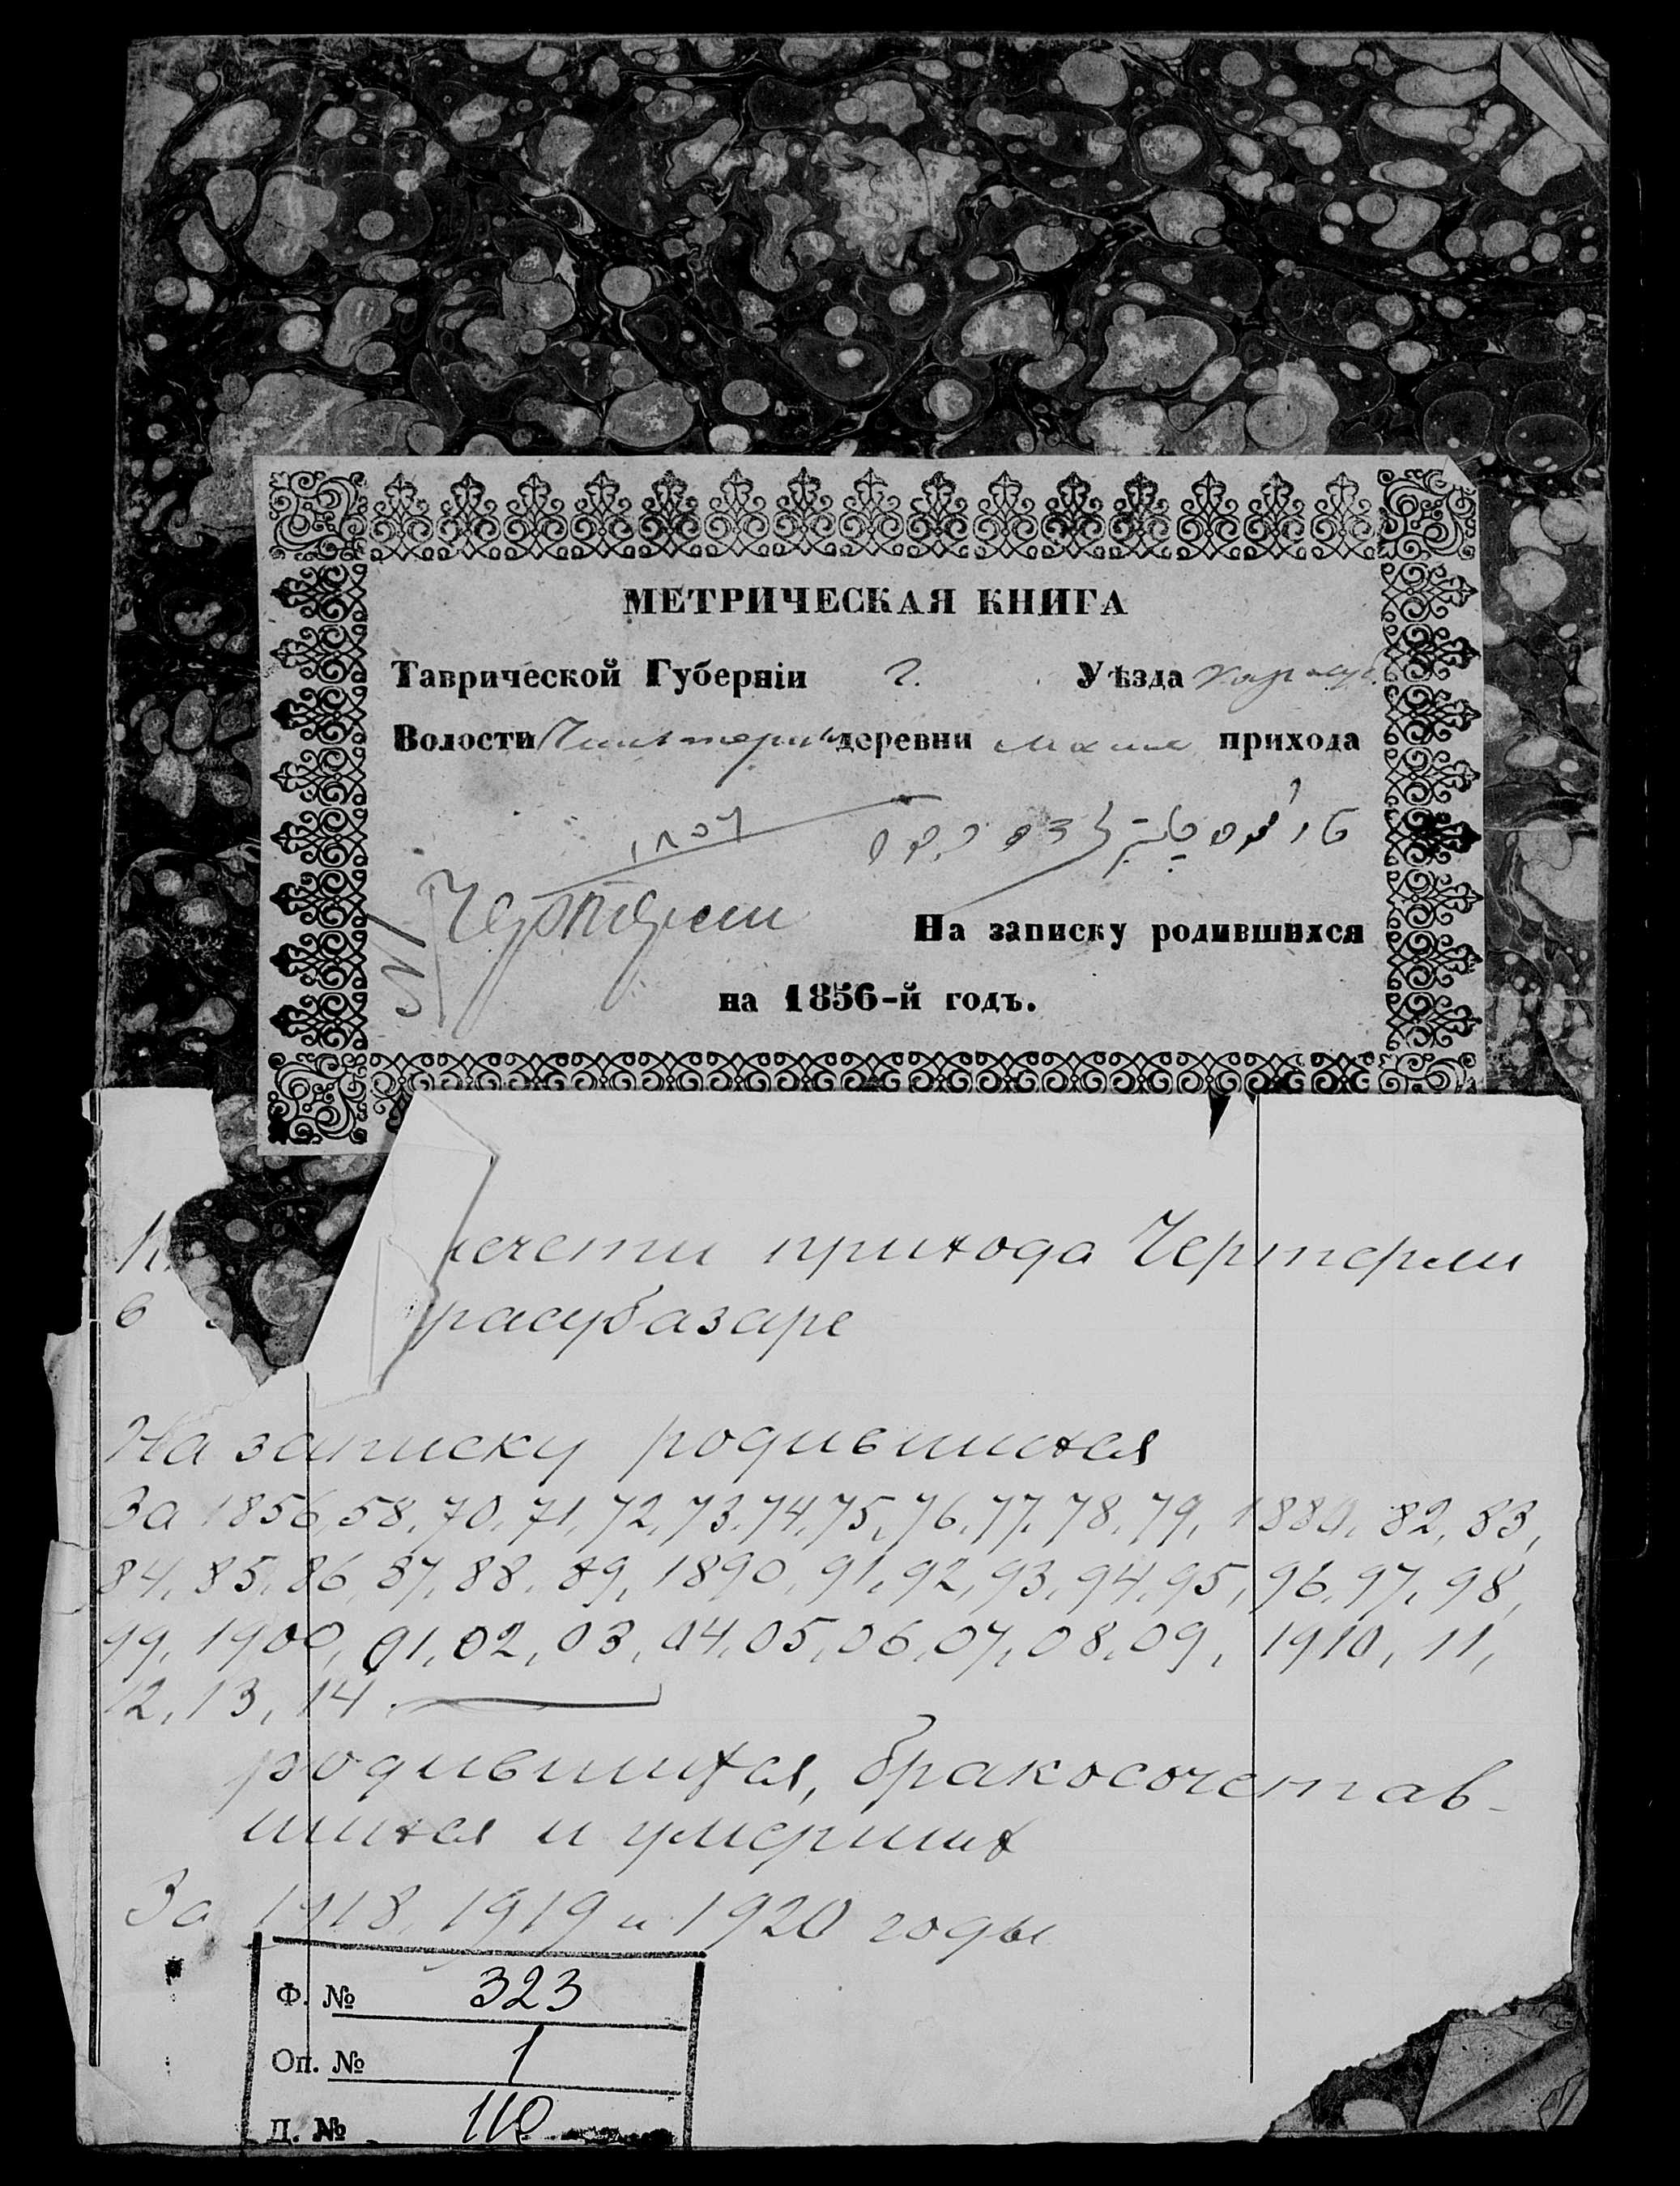 МЕТРИЧЕСКАЯ КНИГА
Таврической Губерніи г. Уѣзда
Волости деревни прихода
١٨٥٦
Чертерли
На записку родившихся
на 1856-й годъ.
мечети прихода Чертерли
в расубазаре
На записку родившихся
За 1856, 58, 70, 71, 72, 73, 74, 75, 76, 77, 78, 79, 1880, 82, 83,
84, 85, 86, 87, 88, 89, 1890, 91, 92, 93, 94, 95, 96, 97, 98,
99, 1900, 01, 02, 03, 04, 05, 06, 07, 08, 09, 1910, 11,
12, 13, 14
родившихся, бракосочетав-
шихся и умерших
За 1918, 1919 и 1920 годы
Ф. № 323
Оп. № 1
Д. № 110